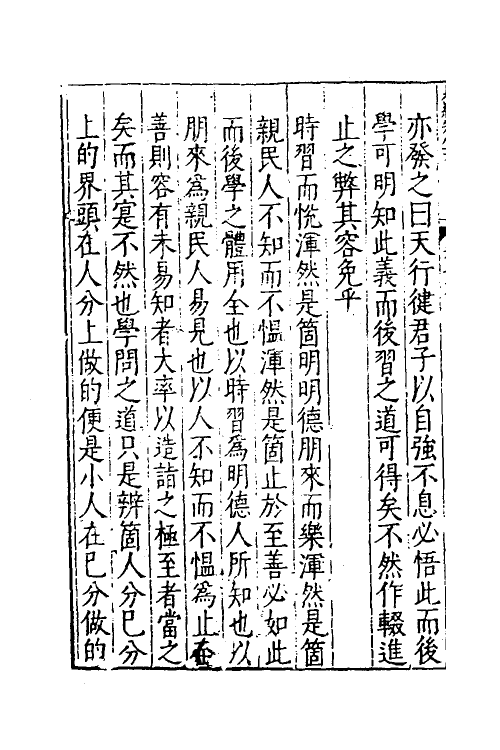 亦發之曰天行徤君子以自強不息必悟此而後
學可明知此義而後習之道可得矣不然作輟進
止之弊其容免乎
時習而悅渾然是箇明明德朋來而樂渾然是箇
親民人不知而不慍渾然是箇止於至善必如此
而後學之體用全也以時習爲明德人所知也以
朋來爲親民人易見也以人不知而不慍爲止至
善則容有未易知者大率以造詣之極至者當之
矣而其寔不然也學問之道只是辨箇人分巳分
上的界頭在人分上做的便是小人在巳分做的